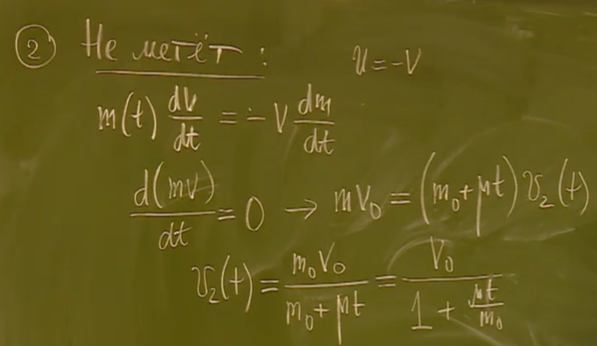 ② Не метёт: u = -v
m(t) dv/dt = -v dm/dt
d(mv)/dt = 0 → mv₀ = (m₀ + μt) v₂(t)
v₂(t) = m₀v₀/(m₀ + μt) = v₀/(1 + μt/m₀)